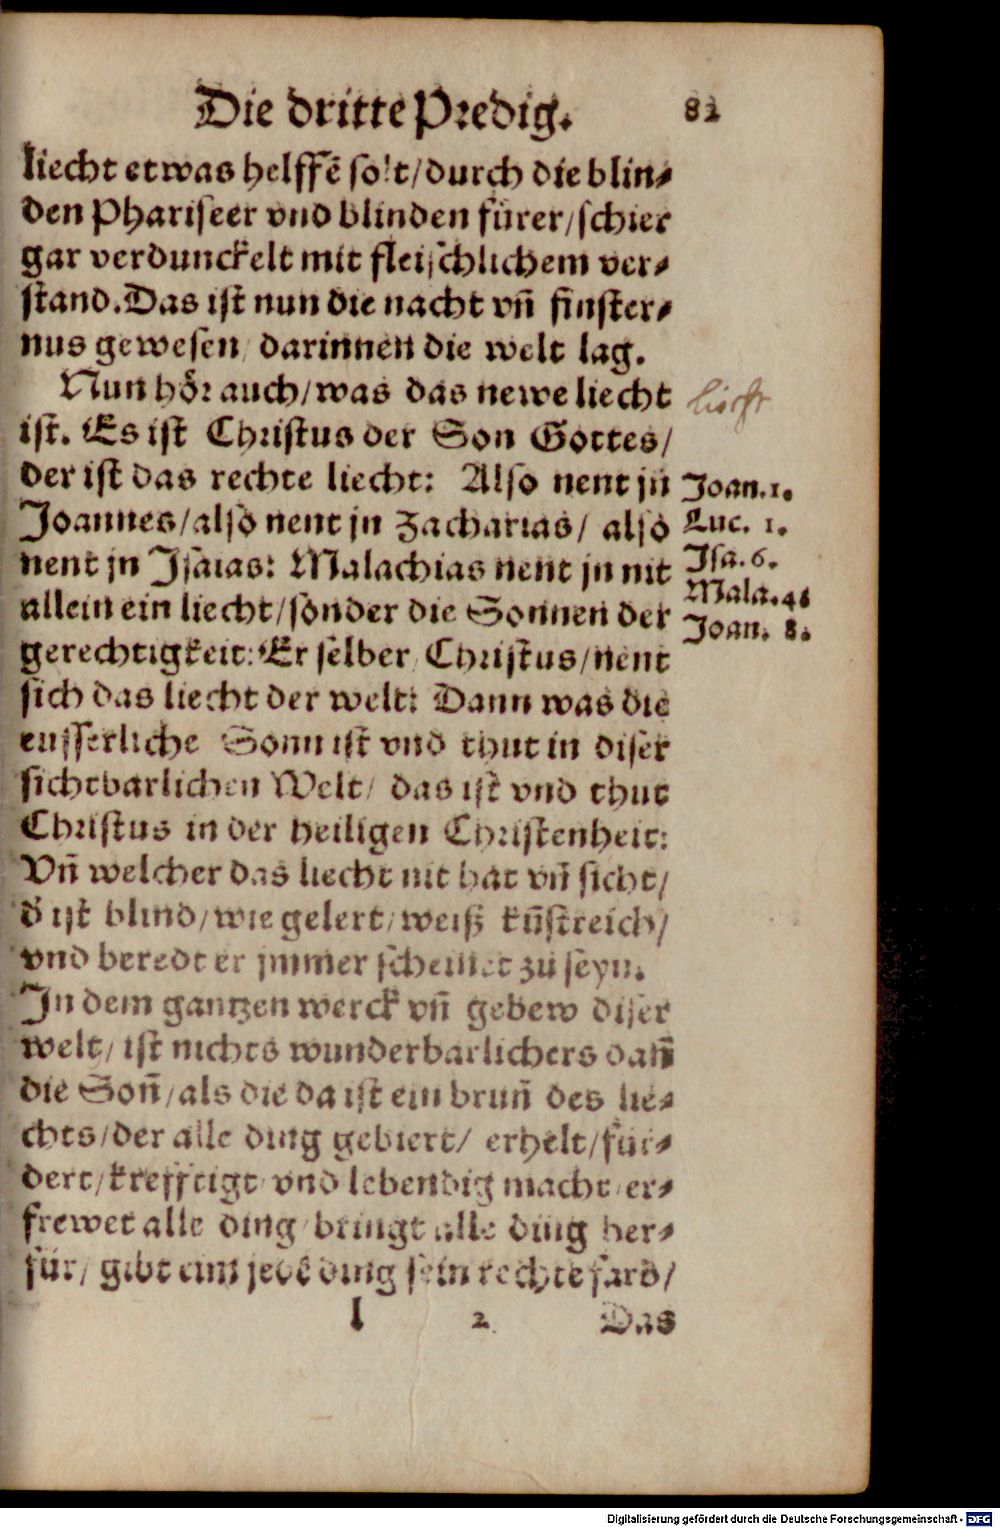 Die dritte Predig. 82
liecht etwas helffē solt/durch die blin⸗
den Phariseer vnd blinden fürer/schier
gar verdunckelt mit fleischlichem ver⸗
stand. Das ist nun die nacht vñ finster⸗
nus gewesen/ darinnen die welt lag.
Nun hör auch/was das newe liecht
liecht
ist. Es ist Christus der Son Gottes/
der ist das rechte liecht: Also nent jn
Joan.1.
Joannes/also nent jn Zacharias/ also
Luc. 1.
nent jn Isaias: Malachias nent jn nit
Isa.6.
allein ein liecht/sonder die Sonnen der
Mala.4.
gerechtigkeit: Er selber Christus/nent
Joan. 8.
sich das liecht der welt: Dann was die
eusserliche Sonn ist vnd thut in diser
sichtbarlichen Welt/ das ist vnd thut
Christus in der heiligen Christenheit:
Vñ welcher das liecht nit hat vñ sicht/
d̄ ist blind/wie gelert/weiß kūstreich/
vnd beredt er jmmer scheinet zu seyn.
In dem gantzen werck vñ gebew diser
welt/ ist nichts wunderbarlichers dañ
die Soñ/als die da ist ein bruñ des lie⸗
chts/der alle ding gebiert/ erhelt/für⸗
dert/krefftigt vnd lebendig macht/er⸗
frewet alle ding/bringt alle ding her⸗
für/ gibt eim jedē ding sein rechte farb/
l 2 Das
Digitalisierung gefördert durch die Deutsche Forschungsgemeinschaft - DFG